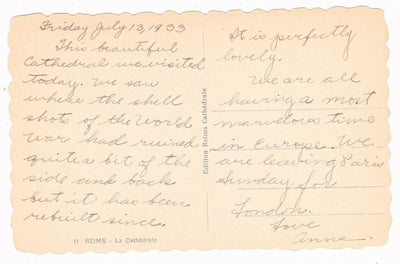 Friday July 13, 1933
This beautiful
Cathedral we visited
today. We saw
where the shell
shots of the World
War had ruined
quite a bit of the
side and back
but it has been
rebuilt since.
21 REIMS - La Cathédrale
Edition Reims Cathédrale
It is perfectly
lovely.
We are all
having a most
marvelous time
in Europe. We
are leaving Paris
Sunday for
London.
Love
Anne